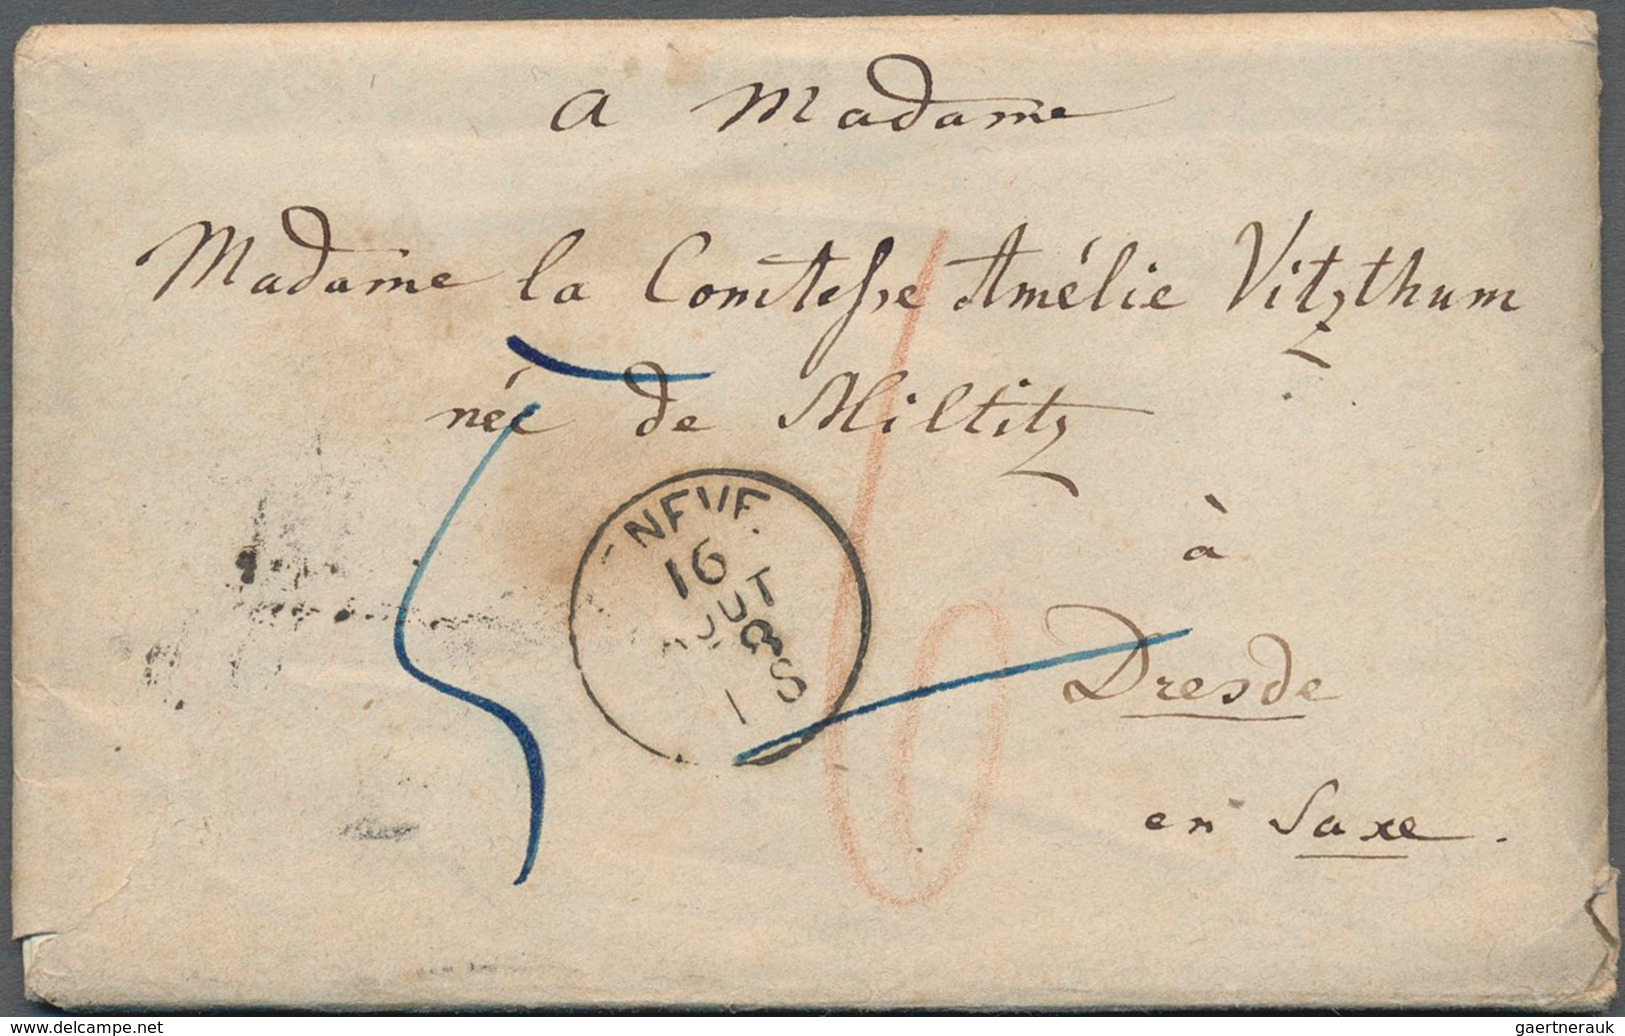 a Madame
Madame la Comtesse Amélie Vitzthum
née de Miltitz
NEUE.
16
AOUT
18
à
Dresde
en Saxe.
5
6
www.delcampe.net
gaertnerauk